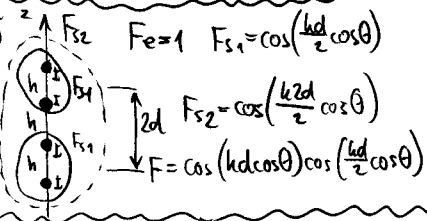 z
Fs2 Fe=1 Fs1=cos(kd/2 cosθ)
I Fs1
h I
h 2d Fs2=cos(k2d/2 cosθ)
I Fs1
h I F=cos(kdcosθ)cos(kd/2 cosθ)